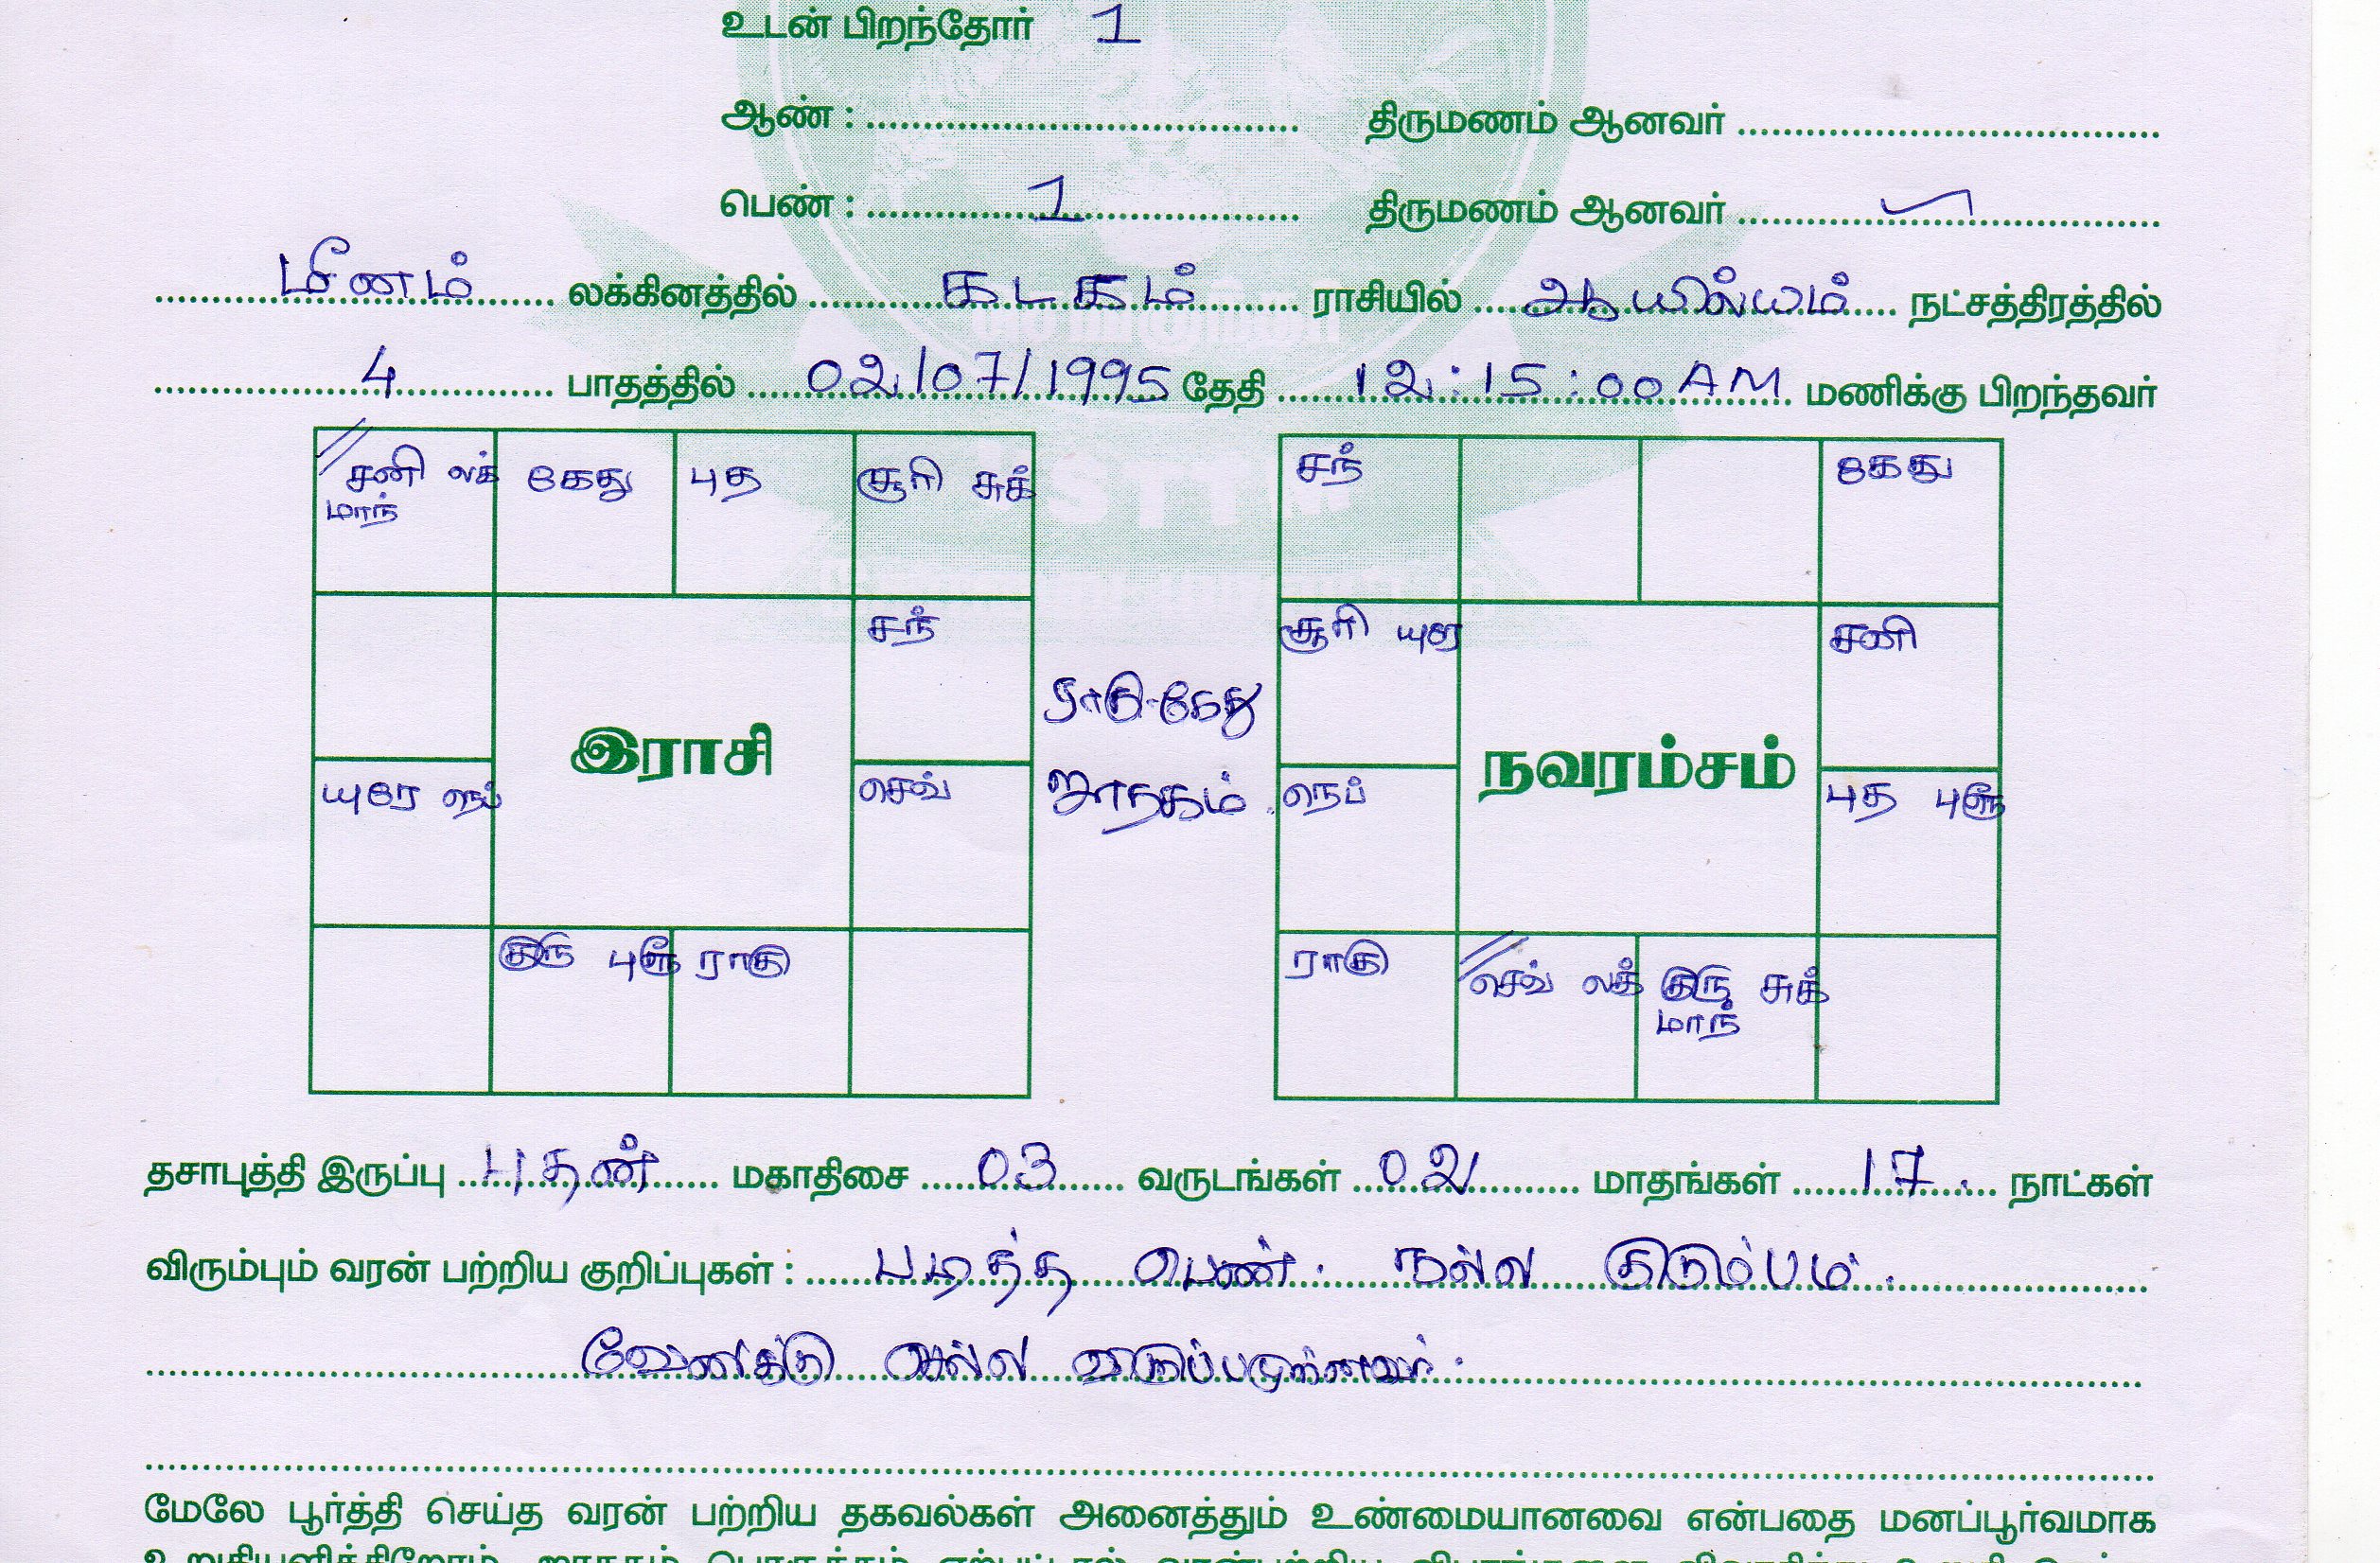 உடன் பிறந்தோர் 1
ஆண் : திருமணம் ஆனவர்
பெண் : 1 திருமணம் ஆனவர்
மீனம் லக்கினத்தில் கடகம் ராசியில் ஆயில்யம் நட்சத்திரத்தில்
4 பாதத்தில் 02/07/1995 தேதி 12:15:00 AM மணிக்கு பிறந்தவர்
சனி லக் கேது புத சூரி சுக்
மாந்
சந்
இராசி
யுரே நெப் செவ்
குரு புளூ ராகு
ராகு-கேது
ஜாதகம்
சந் கேது
சூரி யுரே சனி
நவரம்சம்
நெப் புத புளூ
ராகு செவ் லக் குரு சுக்
மாந்
தசாபுத்தி இருப்பு புதன் மகாதிசை 03 வருடங்கள் 02 மாதங்கள் 17. நாட்கள்
விரும்பும் வரன் பற்றிய குறிப்புகள் : படித்த பெண். நல்ல குடும்பம்.
வேலைக்கு செல்ல
மேலே பூர்த்தி செய்த வரன் பற்றிய தகவல்கள் அனைத்தும் உண்மையானவை என்பதை மனப்பூர்வமாக